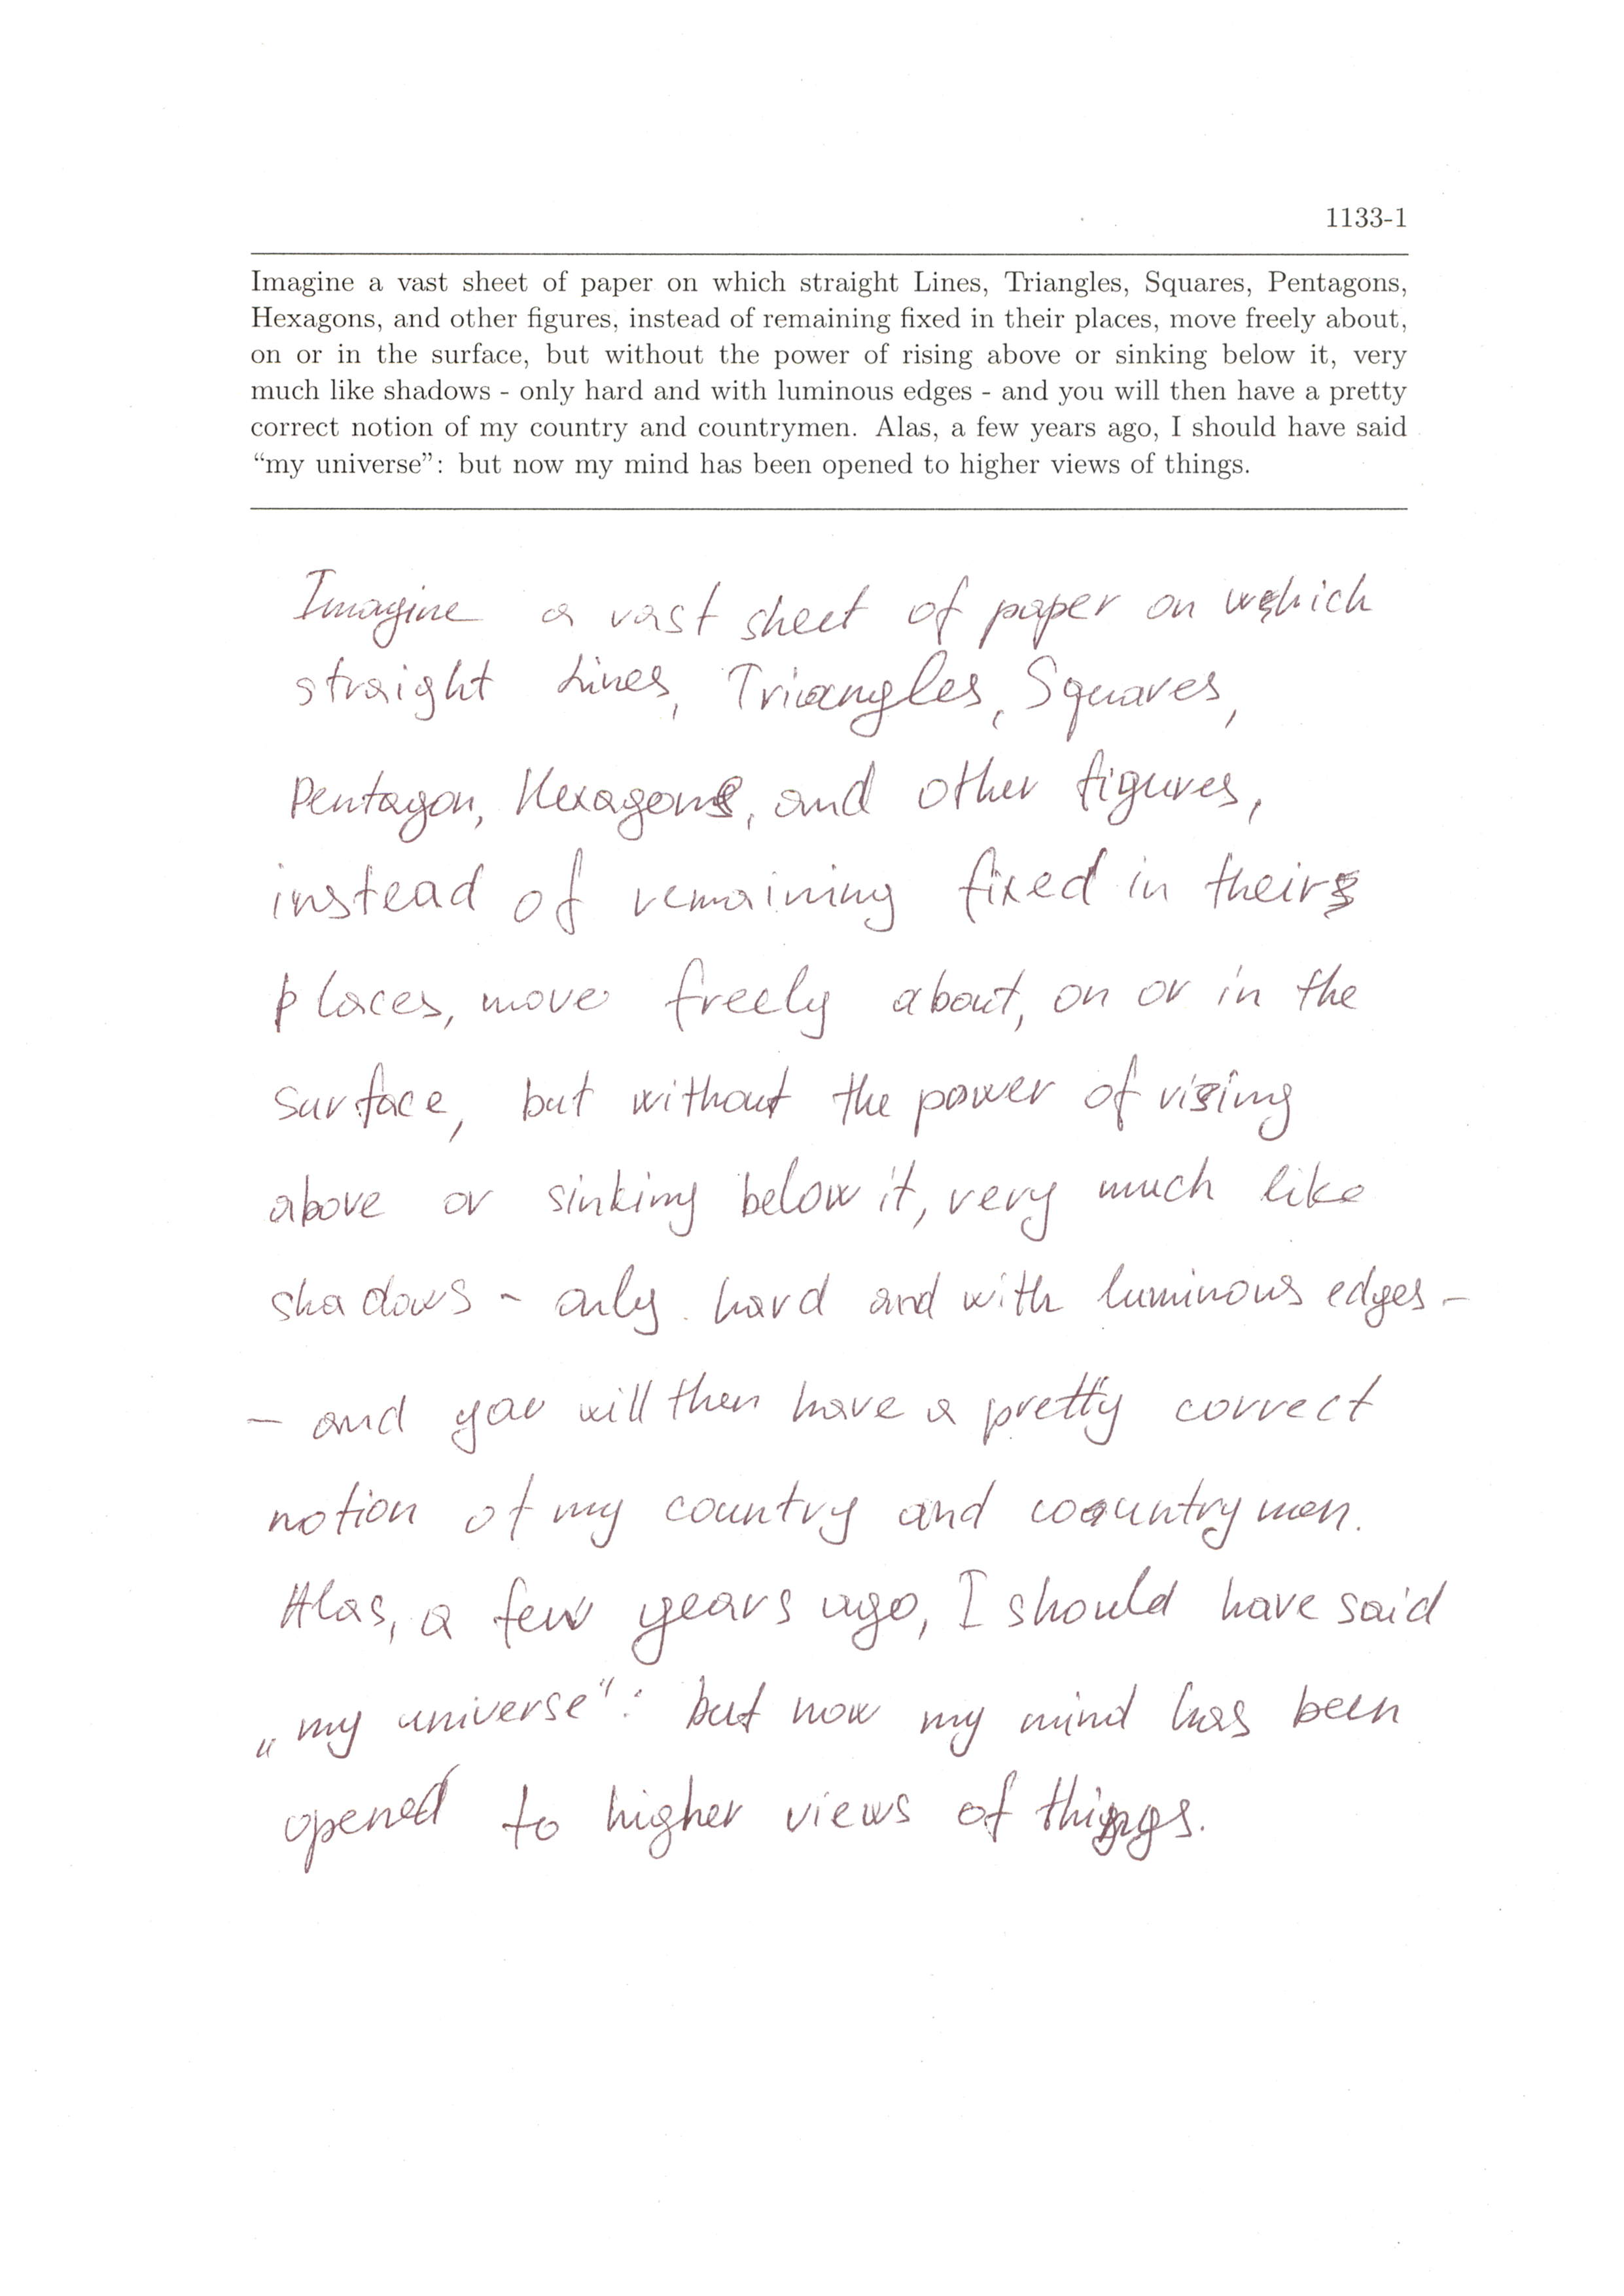 1133-1
Imagine a vast sheet of paper on which straight Lines, Triangles, Squares, Pentagons,
Hexagons, and other figures, instead of remaining fixed in their places, move freely about,
on or in the surface, but without the power of rising above or sinking below it, very
much like shadows - only hard and with luminous edges - and you will then have a pretty
correct notion of my country and countrymen. Alas, a few years ago, I should have said
“my universe”: but now my mind has been opened to higher views of things.
Imagine a vast sheet of paper on which
straight Lines, Triangles, Squares,
Pentagon, Hexagons, and other figures,
instead of remaining fixed in their
places, move freely about, on or in the
surface, but without the power of rising
above or sinking below it, very much like
shadows - only hard and with luminous edges -
- and you will then have a pretty correct
notion of my country and countrymen.
Alas, a few years ago, I should have said
„my universe“: but now my mind has been
opened to higher views of things.